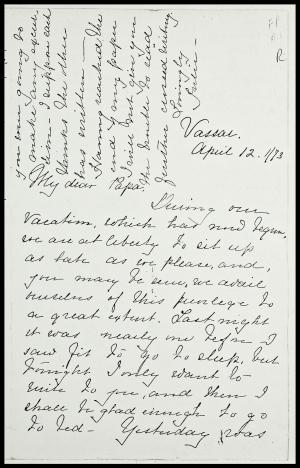 Vassar.
April 12. 1/73
My dear Papa:
During our
Vacation, which has now begun,
we are at liberty to sit up
as late as we please, and,
you may be sure, we avail
ourselves of this privilege to
a great extent. Last night
it was nearly one before I
saw fit to go to sleep, but
tonight I only want to
write to you, and then I
shall be glad enough to go
to bed - Yesterday was
you are going to
make any excuse
I suppose each
thinks the other
has written -
Having reached the
end of my paper
I must not give you
the trouble to read
further crossed writing.
Lovingly